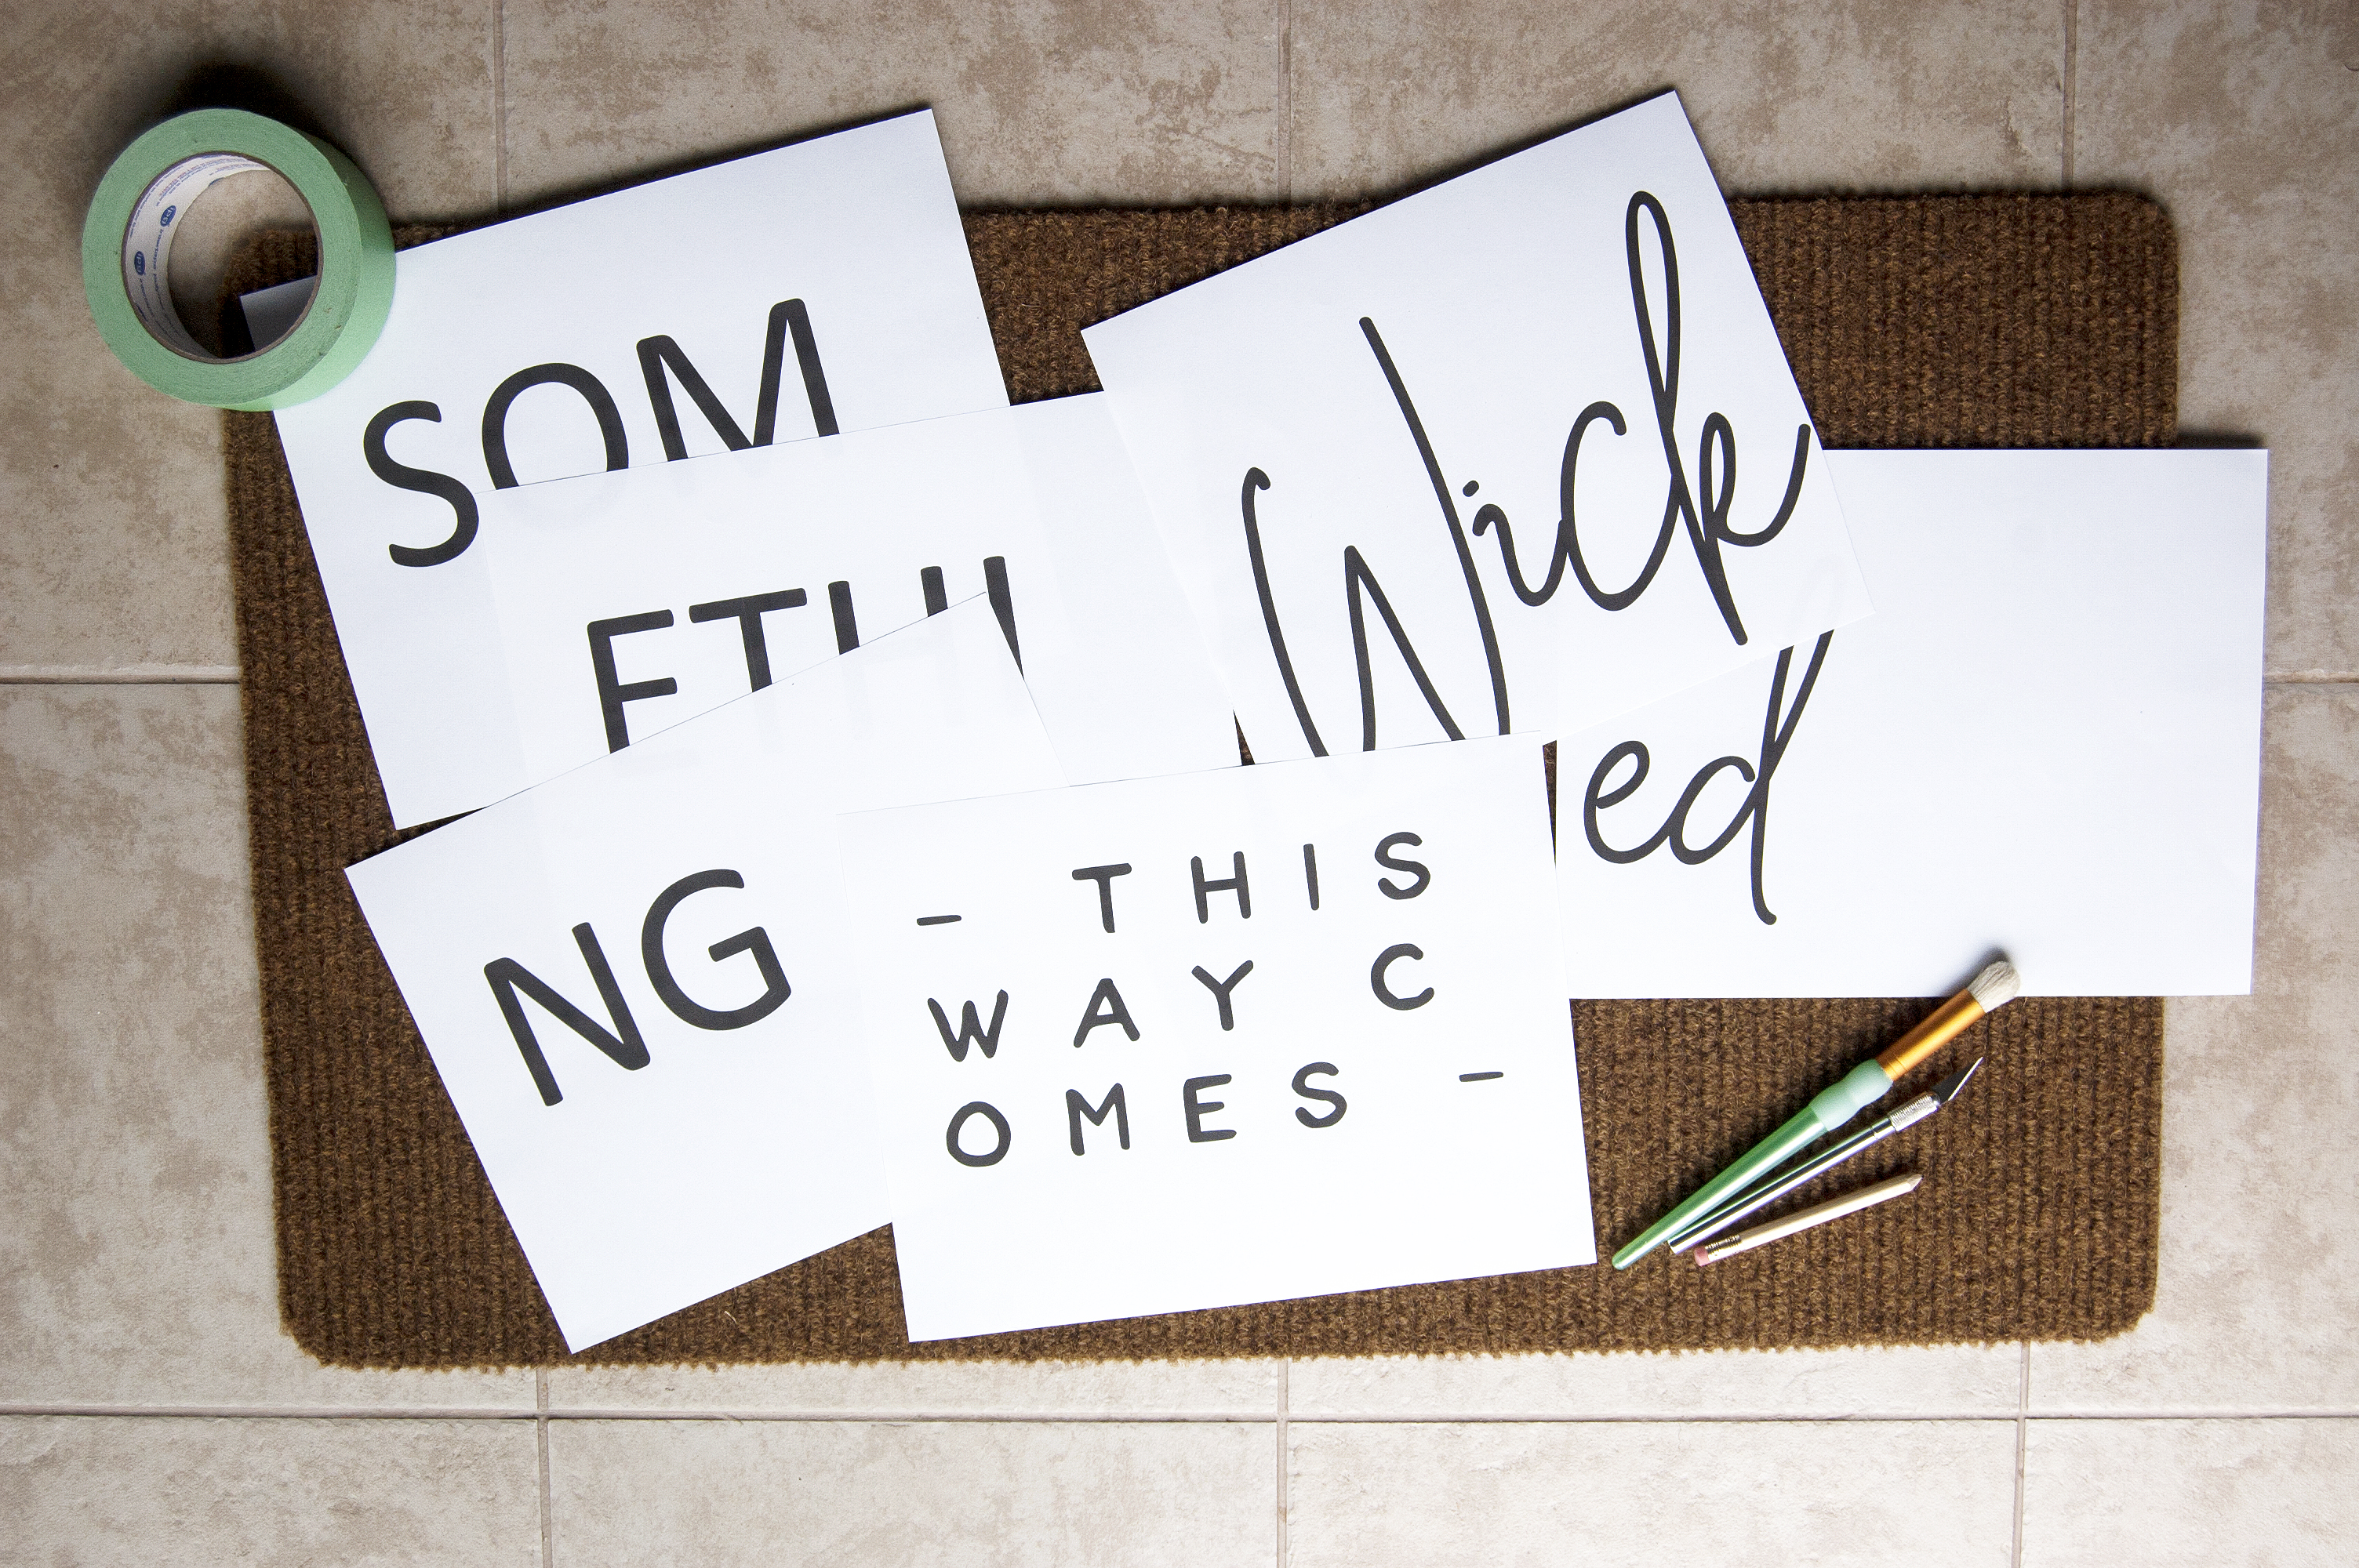 SOM
ETHI
NG
Wick
ed
– THIS
WAY C
OMES –